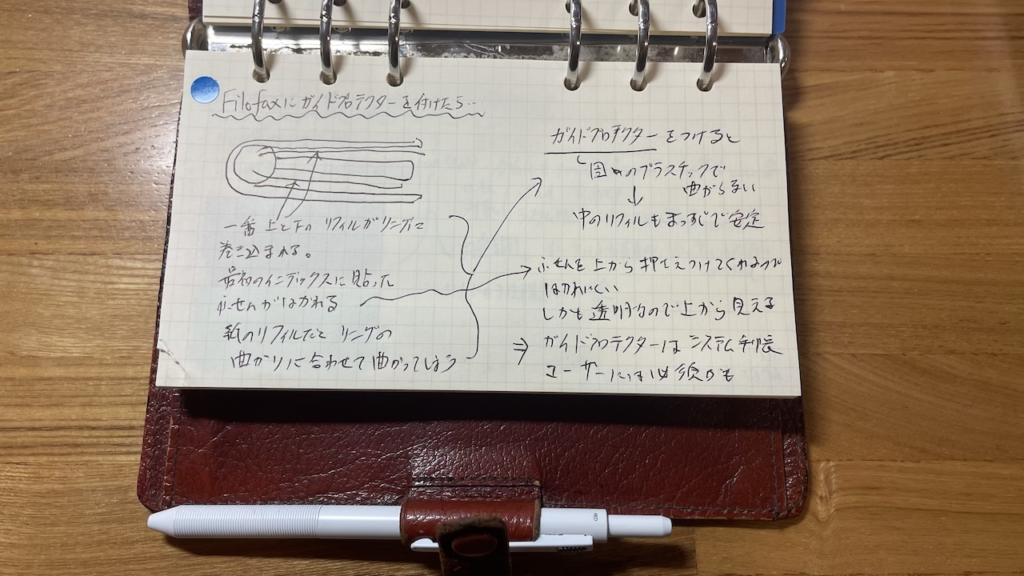 Filofaxにガイドプロテクターを付けたら‥
一番上と下のリフィルがリングに
巻き込まれる。
最初のインデックスに貼った
ふせんがはがれる
紙のリフィルだと リングの
曲がりに合わせて曲がってしまう
ガイドプロテクターをつけると
固めのプラスチックで
曲がらない
↓
中のリフィルもまっすぐで安定
ふせんを上から押さえつけてくれるので
はがれにくい
しかも透明なので上から見える
⇒ ガイドプロテクターはシステム手帳
ユーザーには必須かも